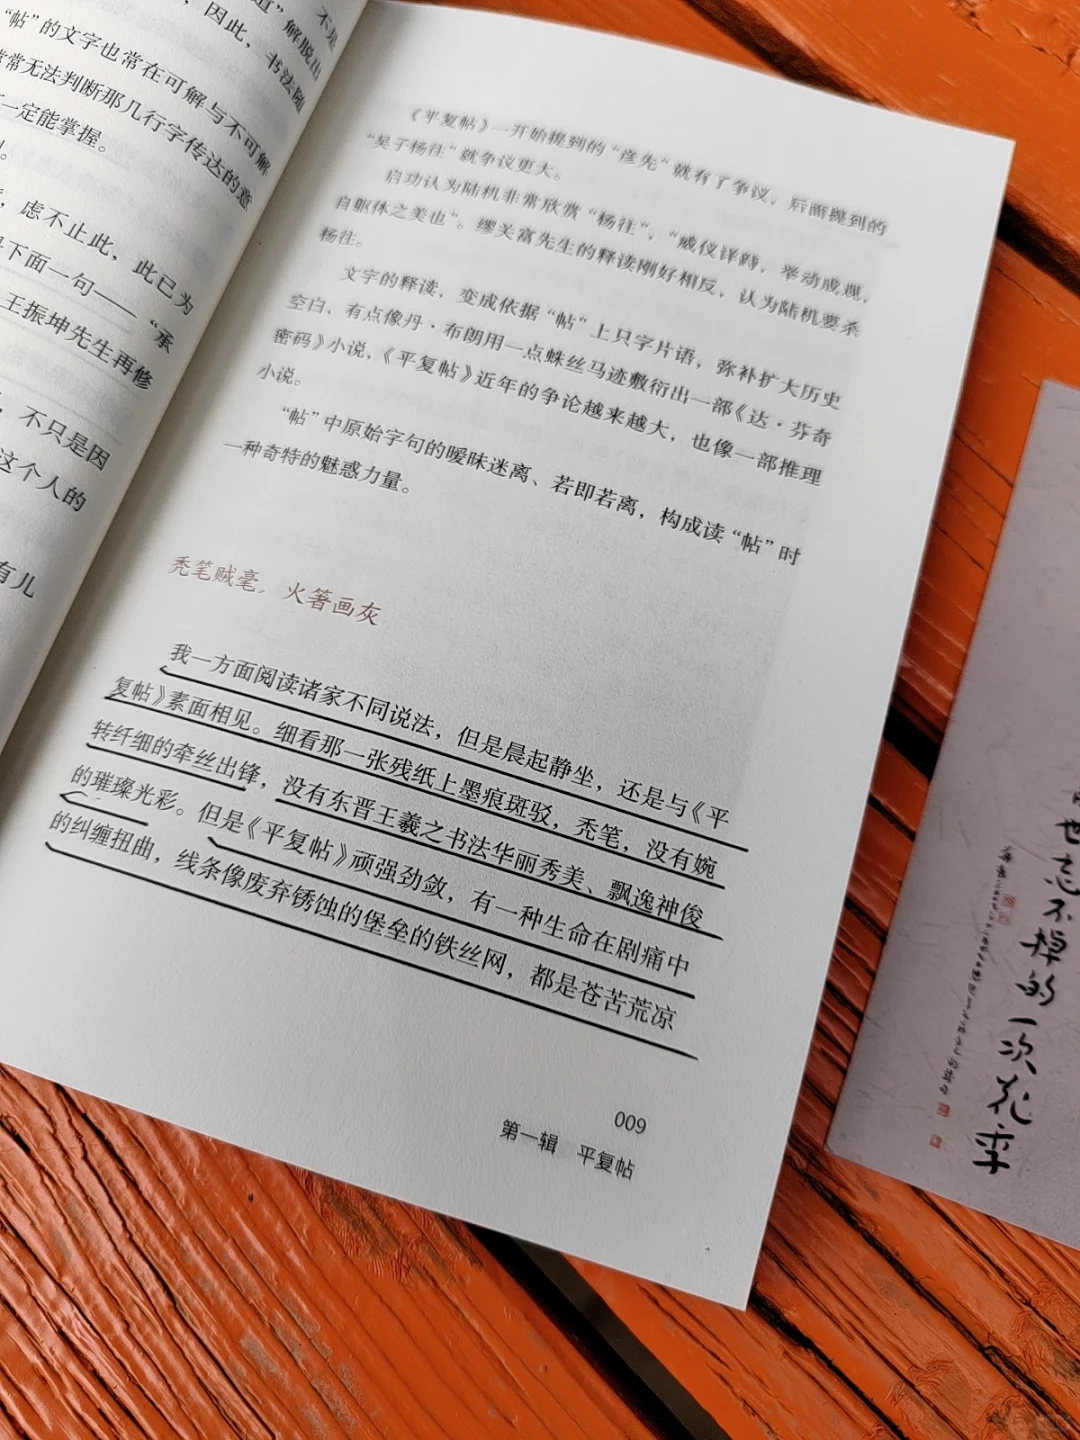 不是
近”解脱出
，因此，书法随
“帖”的文字也常在可解与不可解
常常无法判断那几行字传达的意
一定能掌握。
，虑不止此，此已为
下面一句——“承
王振坤先生再修
，不只是因
这个人的
有儿
《平复帖》一开始提到的“彦先”就有了争议，后面提到的
“吴子杨往”就争议更大。
启功认为陆机非常欣赏“杨往”，“威仪详跱，举动成观，
自躯体之美也”。缪关富先生的释读刚好相反，认为陆机要杀
杨往。
文字的释读，变成依据“帖”上只字片语，弥补扩大历史
空白，有点像丹·布朗用一点蛛丝马迹敷衍出一部《达·芬奇
密码》小说，《平复帖》近年的争论越来越大，也像一部推理
小说。
“帖”中原始字句的暧昧迷离、若即若离，构成读“帖”时
一种奇特的魅惑力量。
秃笔贼毫，火箸画灰
我一方面阅读诸家不同说法，但是晨起静坐，还是与《平
复帖》素面相见。细看那一张残纸上墨痕斑驳，秃笔，没有婉
转纤细的牵丝出锋，没有东晋王羲之书法华丽秀美、飘逸神俊
的璀璨光彩。但是《平复帖》顽强劲敛，有一种生命在剧痛中
的纠缠扭曲，线条像废弃锈蚀的堡垒的铁丝网，都是苍苦荒凉
009
第一辑 平复帖
世忘不掉的一次花季